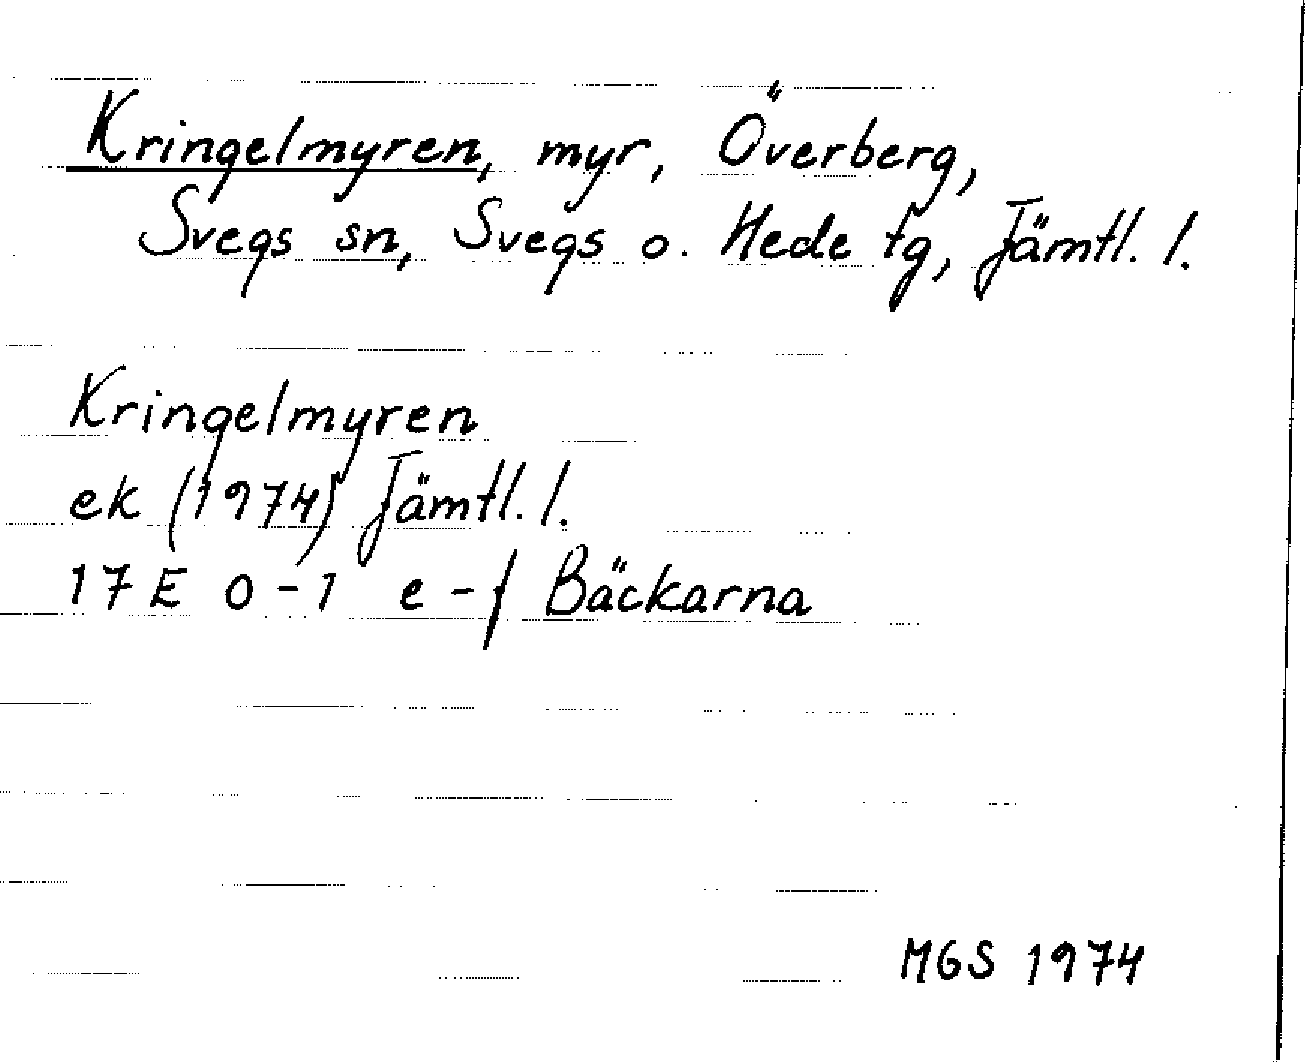 Kringelmyren, myr, Överberg,
Svegs sn, Svegs o. Hede tg, Jämtl. l.
Kringelmyren
ek (1974) Jämtl. l.
17E 0-1 e-f Bäckarna
MGS 1974